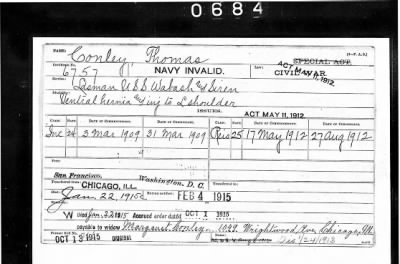 0684
NAME: Conley, Thomas (3-F.A.B.)
6757 NAVY INVALID. Law: ACT MAY 11, 1912. SPECIAL ACT. CIVIL WAR
Service: Ldsman U.S.S. Wabash & Siren
Ventral hernia & inj to L shoulder
ISSUES. ACT MAY 11, 1912.
CLASS. RATE. DATE OF COMMENCEMENT. DATE OF CERTIFICATE. CLASS. RATE. DATE OF COMMENCEMENT. DATE OF CERTIFICATE.
Inc 24 3 Mar 1909 31 Mar 1909 Reis 25 17 May 1912 27 Aug 1912
San Francisco, Washington, D. C.
CHICAGO, ILL.
Jan. 22, 1915 FEB 4 1915
W Died Jan. 22 1915 Accrued order dated OCT 1 1915
payable to widow Margaret Conley 1029 Wrightwood Ave Chicago, Ill.
OCT 13 1915